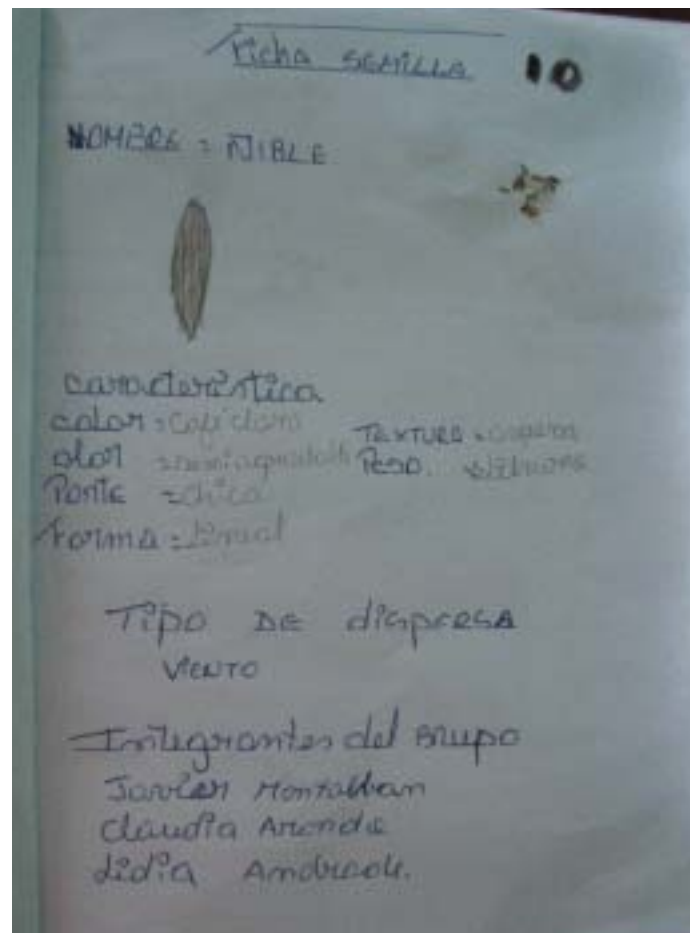 Ficha SEMILLA 10
NOMBRE = ÑIBLE
característica
color = Café claro
olor =
Porte = chica
Forma = lineal
TEXTURA =
PESO = liviana
Tipo DE dispresa
VIENTO
Integrantes del Grupo
Javier Montalban
Claudia Aronde
Lidia Andrade.